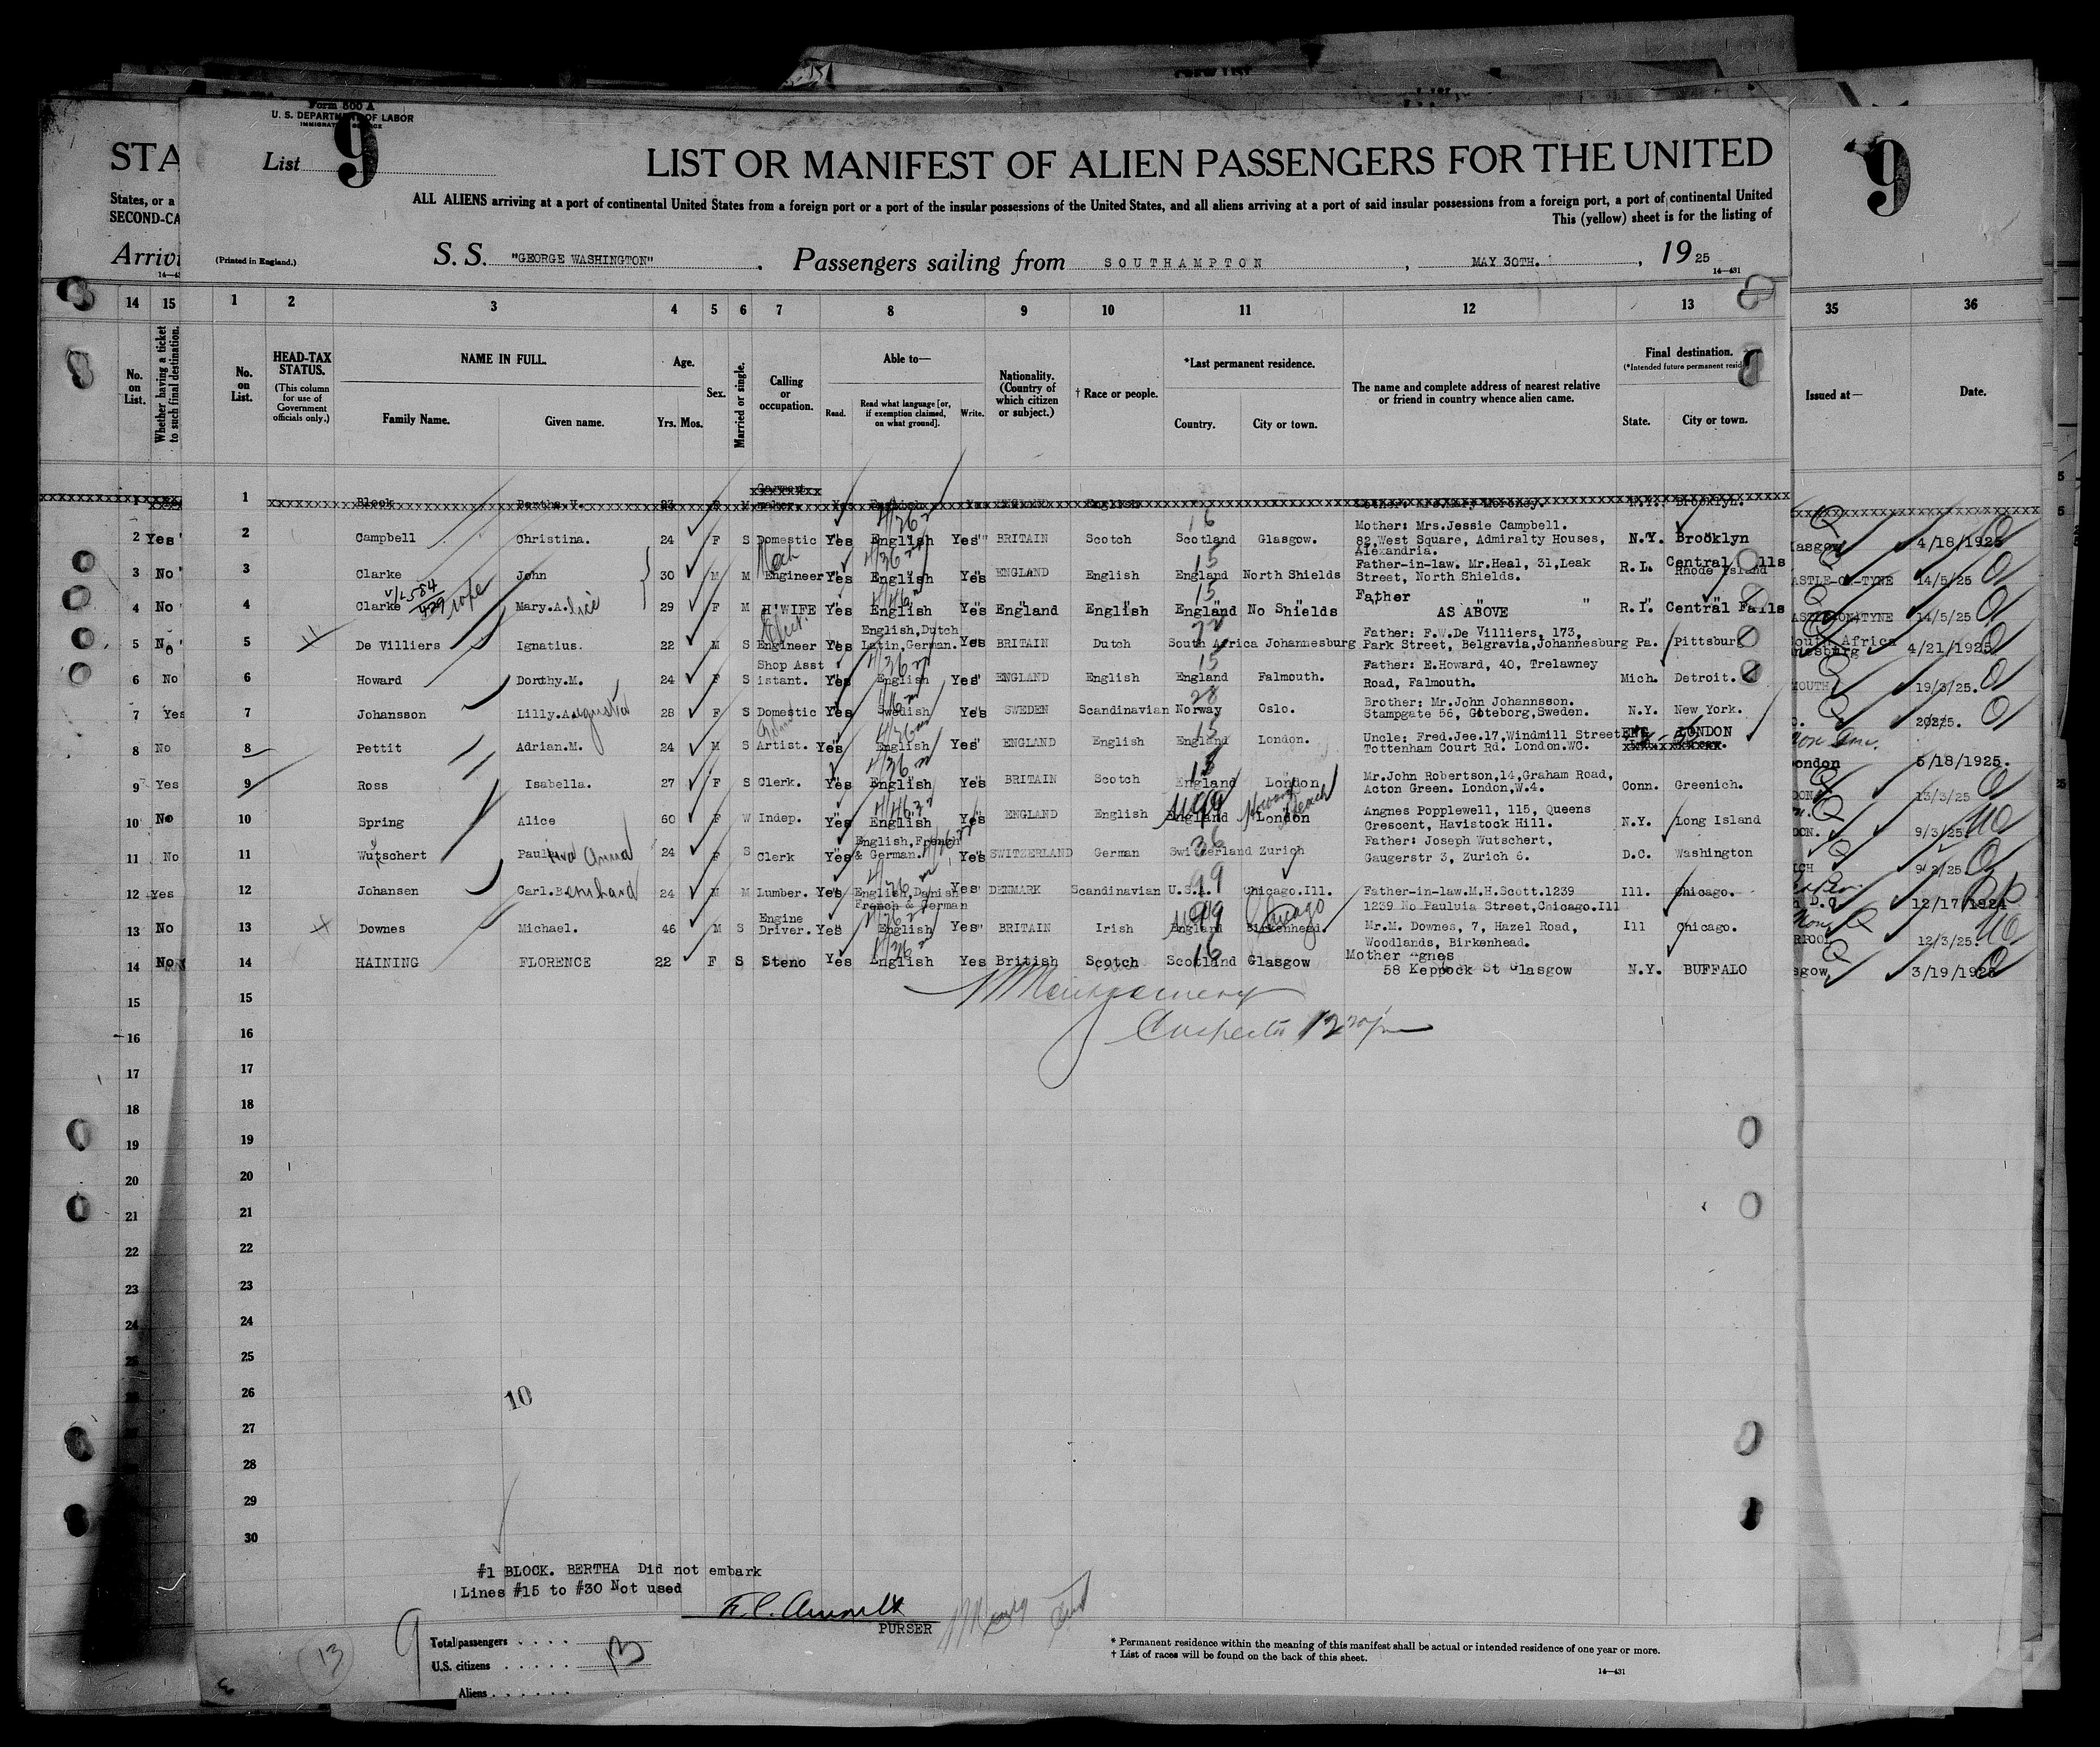 Form 500 A
U. S. DEPARTMENT OF LABOR
List 9
LIST OR MANIFEST OF ALIEN PASSENGERS FOR THE UNITED
STA
9
ALL ALIENS arriving at a port of continental United States from a foreign port or a port of the insular possessions of the United States, and all aliens arriving at a port of said insular possessions from a foreign port, a port of continental United
States, or a
This (yellow) sheet is for the listing of
SECOND-CA
Arrivi
(Printed in England.)
S. S. "GEORGE WASHINGTON" . Passengers sailing from SOUTHAMPTON , MAY 30TH. , 19 25
14—431
14 15 1 2 3 4 5 6 7 8 9 10 11 12 13 35 36
No. on List.
Whether having a ticket to such final destination.
No. on List.
HEAD-TAX STATUS.
(This column for use of Government officials only.)
NAME IN FULL.
Family Name. Given name.
Age.
Yrs. Mos.
Sex.
Married or single.
Calling or occupation.
Able to—
Read. Read what language [or, if exemption claimed, on what ground]. Write.
Nationality. (Country of which citizen or subject.)
† Race or people.
*Last permanent residence.
Country. City or town.
The name and complete address of nearest relative or friend in country whence alien came.
Final destination.
(*Intended future permanent resid
State. City or town.
Issued at—
Date.
1 Block Bertha.V. 23 F M English Yes English N.Y. Brooklyn.
2 Yes 2 Campbell Christina. 24 F S Domestic Yes English Yes BRITAIN Scotch Scotland Glasgow. Mother: Mrs.Jessie Campbell. 82,West Square, Admiralty Houses, Alexandria. N.Y. Brooklyn 4/18/1925
3 No 3 Clarke John 30 M M Mech Engineer Yes English Yes ENGLAND English England North Shields Father-in-law. Mr.Heal, 31,Leak Street, North Shields. R.I. Central Falls Rhode Island ASTLE-ON-TYNE 14/5/25
4 No 4 Clarke Mary.Alice 29 F M H'WIFE Yes English Yes England English England No Shields Father AS ABOVE R.I. Central Falls ASTLE-ON-TYNE 14/5/25
5 No 5 De Villiers Ignatius. 22 M S Elect. Engineer Yes English,Dutch Latin,German. Yes BRITAIN Dutch South Africa Johannesburg Father: F.W.De Villiers, 173, Park Street, Belgravia,Johannesburg Pa. Pittsburg 4/21/1925
6 No 6 Howard Dorothy.M. 24 F S Shop Asst istant. Yes English Yes ENGLAND English England Falmouth. Father: E.Howard, 40, Trelawney Road, Falmouth. Mich. Detroit. MOUTH 19/3/25.
7 Yes 7 Johansson Lilly.Augusta 28 F S Domestic Yes Swedish Yes SWEDEN Scandinavian Norway Oslo. Brother: Mr.John Johannsson. Stampgate 56, Göteborg,Sweden. N.Y. New York.
8 No 8 Pettit Adrian.M. 24 M S Artist. Yes English Yes ENGLAND English England London. Uncle: Fred.Jee.17,Windmill Street Tottenham Court Rd. London.WC. ENG LONDON ondon 5/18/1925.
9 Yes 9 Ross Isabella. 27 F S Clerk. Yes English Yes BRITAIN Scotch England London Mr.John Robertson,14,Graham Road, Acton Green. London,W.4. Conn. Greenich. DON 13/3/25
10 No 10 Spring Alice 60 F W Indep. Yes English Yes ENGLAND English England London Angnes Popplewell, 115, Queens Crescent, Havistock Hill. N.Y. Long Island DON. 9/3/25
11 No 11 Wutschert Paul Anna 24 F S Clerk Yes English,French & German. Yes SWITZERLAND German Switzerland Zurich Father: Joseph Wutschert, Gaugerstr 3, Zurich 6. D.C. Washington ICH 9/2/25.
12 Yes 12 Johansen Carl.Bernhard 24 M M Lumber. Yes English,Danish French & German Yes DENMARK Scandinavian U.S.A. Chicago.Ill. Father-in-law.M.H.Scott.1239 1239 No Pauluia Street,Chicago.Ill Ill. Chicago. 12/17/1924
13 No 13 Downes Michael. 46 M S Engine Driver. Yes English Yes BRITAIN Irish England Birkenhead. Chicago Mr.M. Downes, 7, Hazel Road, Woodlands, Birkenhead. Ill Chicago. RPOOL 12/3/25.
14 No 14 HAINING FLORENCE 22 F S Steno Yes English Yes British Scotch Scotland Glasgow Mother Agnes 58 Keppock St Glasgow N.Y. BUFFALO sgow 3/19/1925
15 15 Montgomery
16 16 Inspector 12 30 pm
17 17
18 18
19 19
20 20
21 21
22 22
23 23
24 24
25 25
26 10
27
28
29
30
#1 BLOCK. BERTHA Did not embark
Lines #15 to #30 Not used
PURSER
9
13
Total passengers . . . . 13
U.S. citizens . . . . . .
Aliens . . . . . .
* Permanent residence within the meaning of this manifest shall be actual or intended residence of one year or more.
† List of races will be found on the back of this sheet.
14—431